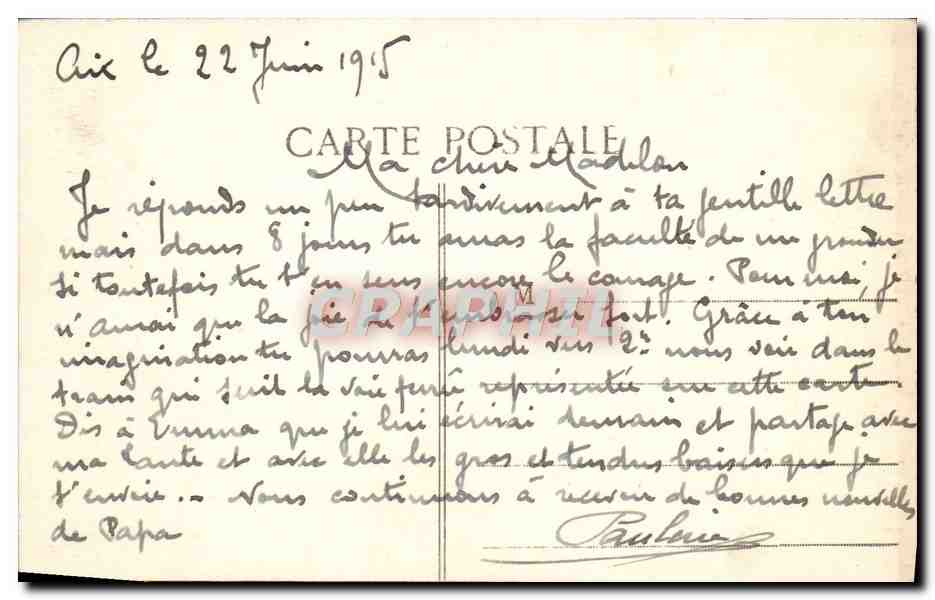 Aix le 22 Juin 1915
CARTE POSTALE
Ma chère Madelon
Je réponds un peu tardivement à ta gentille lettre
mais dans 8 jours tu auras la faculté de me gronder
si toutefois tu t'en sens encore le courage. Pour moi, je
n'aurai que la joie de t'embrasser fort. Grâce à ton
imagination tu pourras lundi vers 2h nous voir dans le
train qui suit la voie ferrée représentée sur cette carte.
Dis à Emma que je lui écrirai demain et partage avec
ma tante et avec elle les gros et tendres baisers que je
t'envoie. - Nous continuons à recevoir de bonnes nouvelles
de Papa
Paulerie
CPAPHIL
M